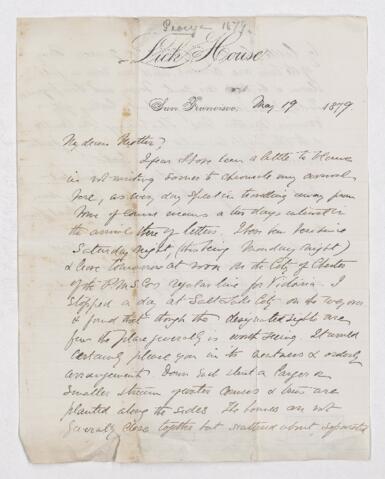 George 1879.
Lick House
San Francisco, May 19 1879
My dear Mother,
I fear I have been a little to blame
in not writing sooner to chronicle my arrival
here, as every day spent in travelling away from
home of course means a two days interval in
the arrival there of letters. I have been here since
Saturday night (this being Monday night)
& leave tomorrow at noon on the City of Chester
of the P.M.S.Cos regular line for Victoria. I
stopped a day at Salt Lake City on the way over
& found that though the designated sights are
few the place generally is worth seeing. It would
certainly please you in its neatness & orderly
arrangement. Down each street a larger or
smaller stream of water courses & trees are
planted along the sides. The houses are not
generally close together but scattered about, separated